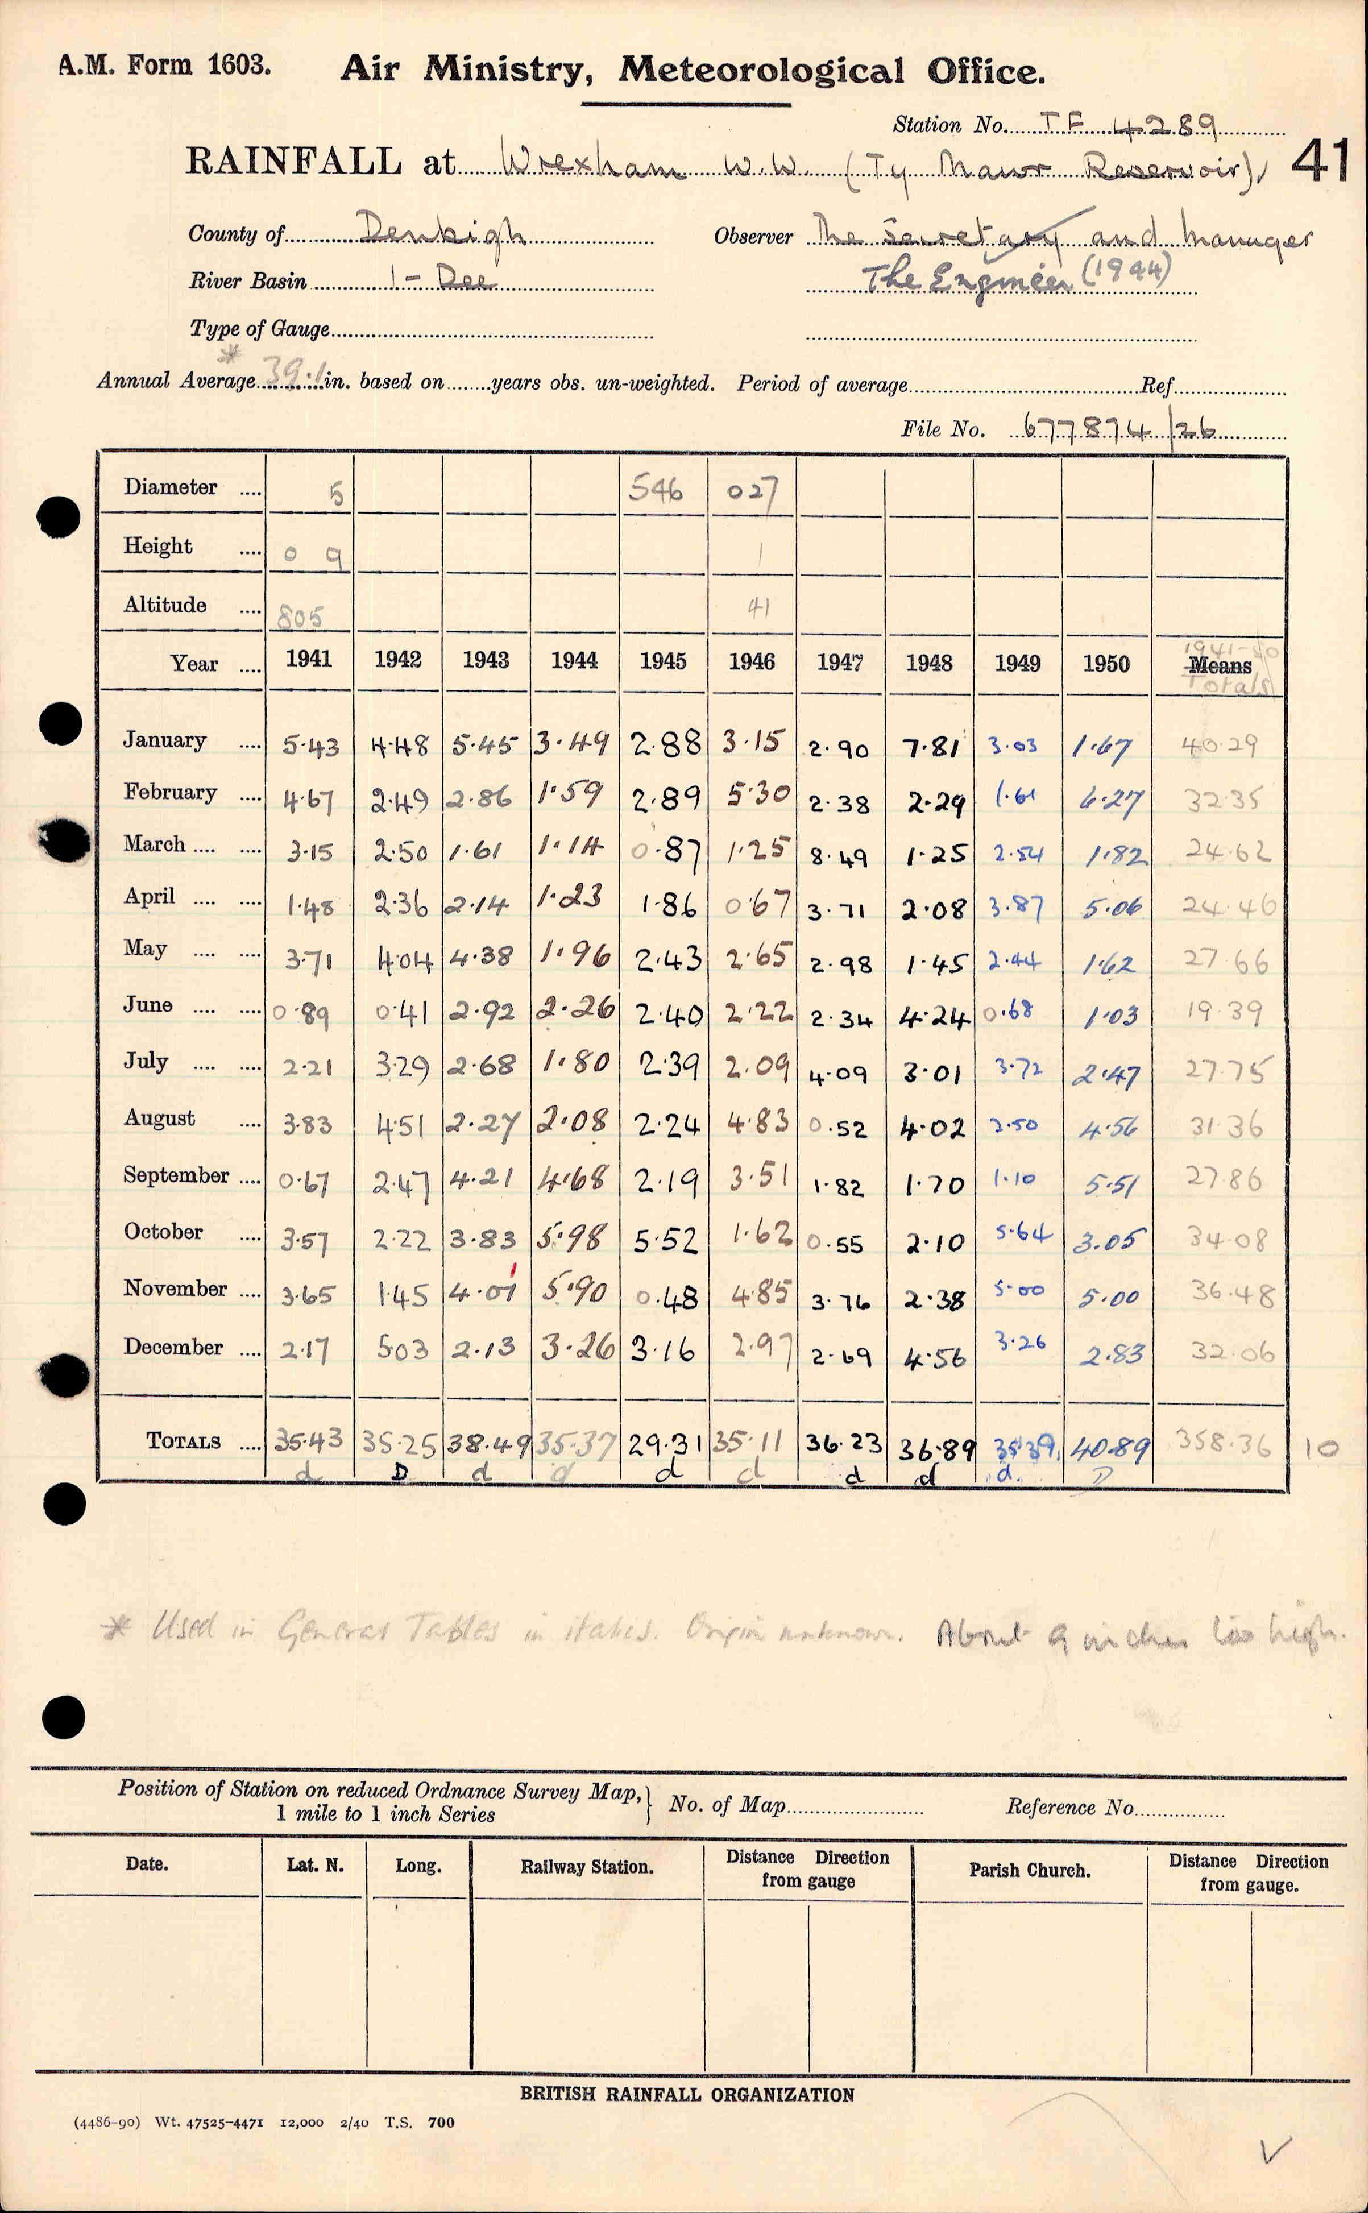 A.M. Form 1603. Air Ministry, Meteorological Office.
Station No. TF 4289
RAINFALL at Wrexham W.W. (Ty Mawr Reservoir), 41
County of Denbigh Observer The Secretary and Manager
River Basin 1 - Dee The Engineer (1944)
Type of Gauge
*
Annual Average 39.1 in. based on years obs. un-weighted. Period of average Ref.
File No. 677874/26
Diameter 5 546 027
Height 0 9 1
Altitude 805 41
Year 1941 1942 1943 1944 1945 1946 1947 1948 1949 1950 1941-50 Means Totals
January 5.43 4.48 5.45 3.49 2.88 3.15 2.90 7.81 3.03 1.67 40.29
February 4.67 2.49 2.86 1.59 2.89 5.30 2.38 2.29 1.61 6.27 32.35
March 3.15 2.50 1.61 1.14 0.87 1.25 8.49 1.25 2.54 1.82 24.62
April 1.48 2.36 2.14 1.23 1.86 0.67 3.71 2.08 3.87 5.06 24.46
May 3.71 4.04 4.38 1.96 2.43 2.65 2.98 1.45 2.44 1.62 27.66
June 0.89 0.41 2.92 2.26 2.40 2.22 2.34 4.24 0.68 1.03 19.39
July 2.21 3.29 2.68 1.80 2.39 2.09 4.09 3.01 3.72 2.47 27.75
August 3.83 4.51 2.27 2.08 2.24 4.83 0.52 4.02 2.50 4.56 31.36
September 0.67 2.47 4.21 4.68 2.19 3.51 1.82 1.70 1.10 5.51 27.86
October 3.57 2.22 3.83 5.98 5.52 1.62 0.55 2.10 5.64 3.05 34.08
November 3.65 1.45 4.01 5.90 0.48 4.85 3.76 2.38 5.00 5.00 36.48
December 2.17 5.03 2.13 3.26 3.16 2.97 2.69 4.56 3.26 2.83 32.06
TOTALS 35.43 35.25 38.49 35.37 29.31 35.11 36.23 36.89 35.39 40.89 358.36 10
d D d d d d d d d D
* Used in General Tables in italics. Origin unknown. About 9 inches too high.
Position of Station on reduced Ordnance Survey Map, 1 mile to 1 inch Series } No. of Map Reference No.
Date. Lat. N. Long. Railway Station. Distance Direction from gauge Parish Church. Distance Direction from gauge.
BRITISH RAINFALL ORGANIZATION
(4486-90) Wt. 47525-4471 12,000 2/40 T.S. 700